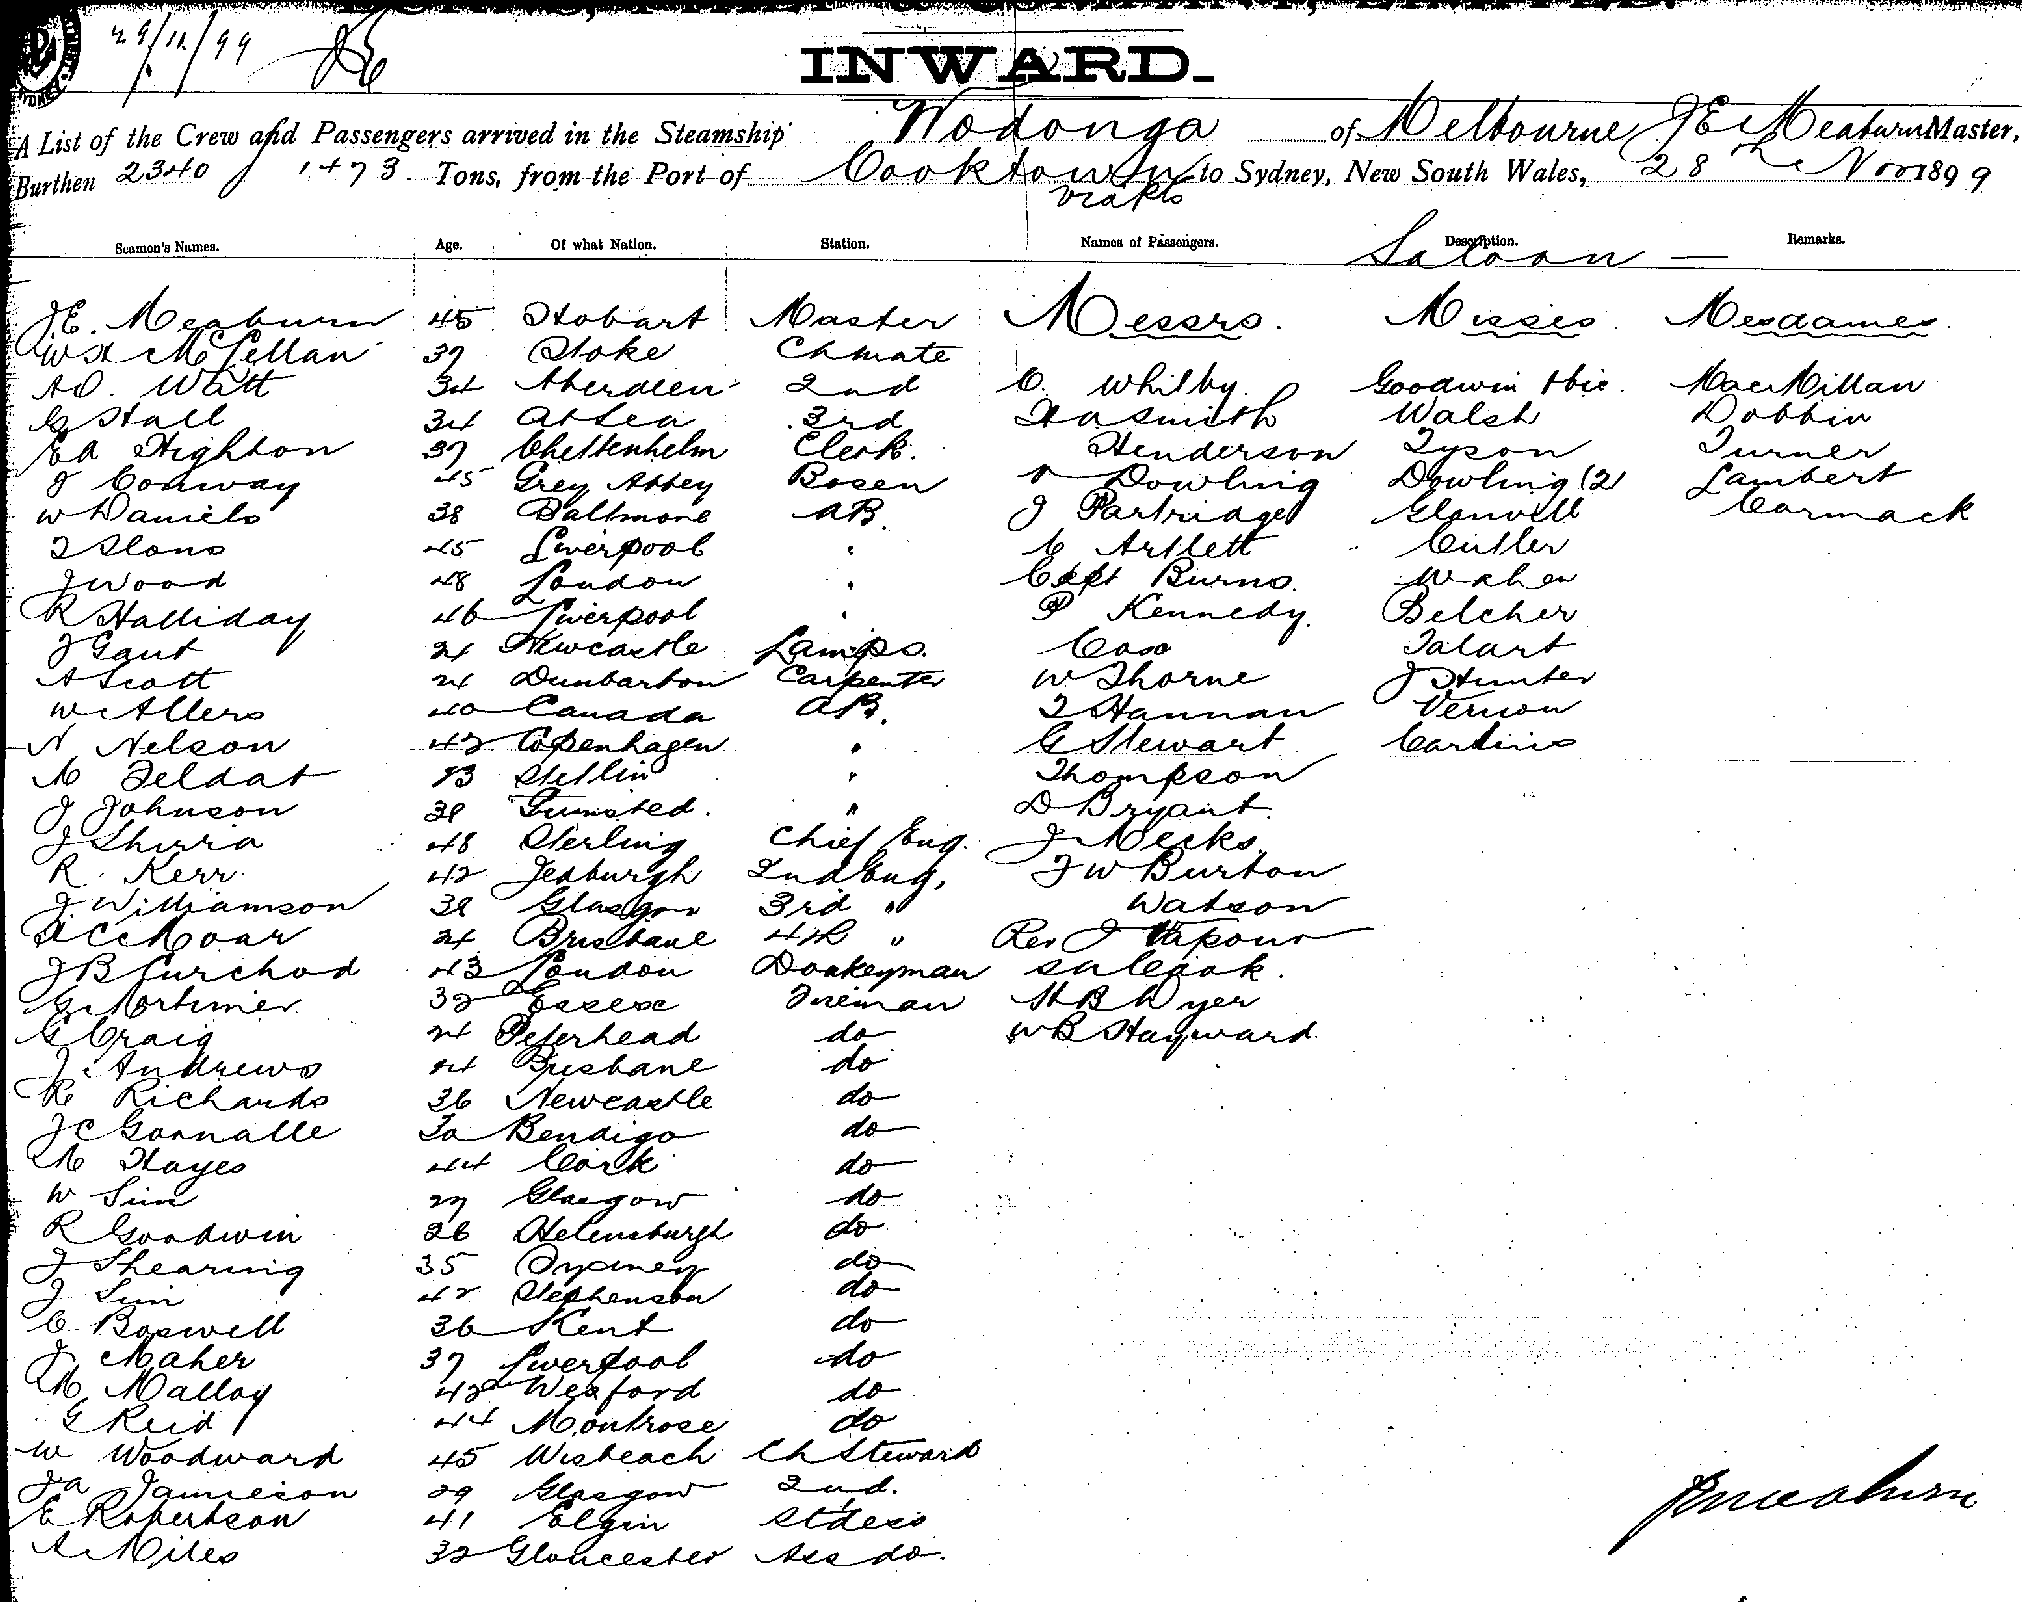 29/11/99
INWARD.
A List of the Crew and Passengers arrived in the Steamship Wodonga of Melbourne J E Meaburn Master,
Burthen 2340 / 1473 Tons, from the Port of Cooktown to Sydney, New South Wales, 28th Nov 1899
Seamen's Names. Age. Of what Nation. Station. Names of Passengers. Description. Remarks.
Saloon —
J E. Meaburn 45 Hobart Master Messrs. Misses. Mesdames.
McLellan 37 Stoke Ch mate
A D. Watt 34 Aberdeen 2nd C. Whilby Goodwin MacMillan
G Hall 34 At Sea 3rd Hasmith Walsh Dobbin
E A Highton 37 Cheltenhelm Clerk. Henderson Tyson Turner
J Conway 45 Grey Abbey Bosen Dowling Dowling (2) Lambert
W Daniels 38 Baltmore AB. J Partridge Glanvill Carmack
45 Liverpool " C Artlett Cutler
J Wood 48 London " Capt Burns.
R Halliday 46 Liverpool " P Kennedy. Belcher
J Gaut 24 Newcastle Lamps. Talart
A Scott 24 Dunbarton Carpenter W Thorne J Hunter
W Allers 40 Canada AB. T Hannan Vernon
N Nelson 42 Copenhagen " G Stewart
Stettin " Thompson
J Johnson " D Bryant.
J Shirra 48 Sterling Chief Eng. J Meeks.
R. Kerr. 42 Jedburgh 2nd Eng, J W Burton
J Williamson 39 Glasgow 3rd " Watson
24 Brisbane 4th " Rev J
J B Curchod 43 London Donkeyman
G Mortimer 32 Essex Fireman H B Dyer
G Craig 24 Peterhead do W B Hayward
J Andrews 24 Brisbane do
R Richards 36 Newcastle do
J C Gonnalle Bendigo do
M Hayes 44 Cork do
W Sim 27 Glasgow do
R Goodwin 26 Helensburgh do
J Shearing 35 do
J Sim 42 Stephenson do
C Boswell 36 Kent do
J Maher 37 Liverpool do
M Malloy 42 Wexford do
G Reid 44 Montrose do
W Woodward 45 Wisbeach Ch Steward
J A Jamieson 29 Glasgow 2nd.
E Robertson 41 Elgin Stdess
A Miles 32 Gloucester Ass do.
J E Meaburn